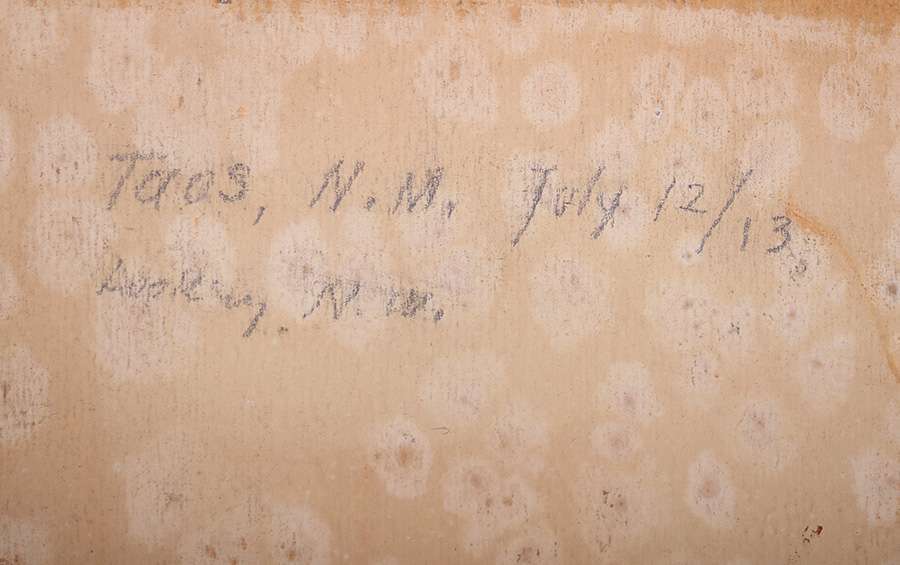 Taos, N.M. July 12/13
N.M.